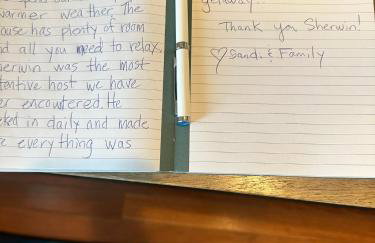 warmer weather. The
house has plenty of room
and all you need to relax.
Sherwin was the most
attentive host we have
ever encountered. He
checked in daily and made
everything was
getaway.
Thank you Sherwin!
♡ Sandi & Family